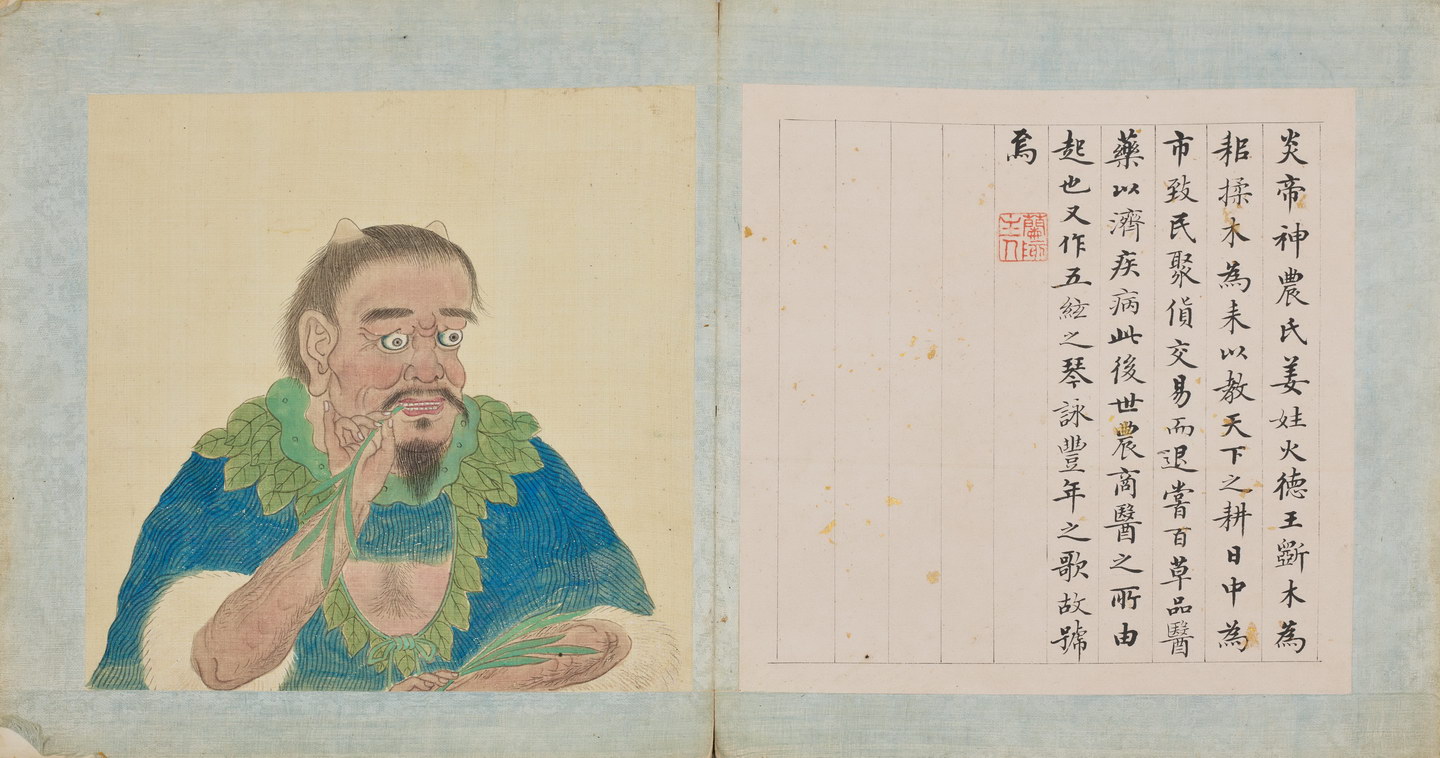 炎帝神農氏姜姓火德王斲木為
耜揉木為耒以教天下之耕日中為
市致民聚貨交易而退嘗百草品醫
藥以濟疾病此後世農商醫之所由
起也又作五絃之琴詠豐年之歌故號
焉